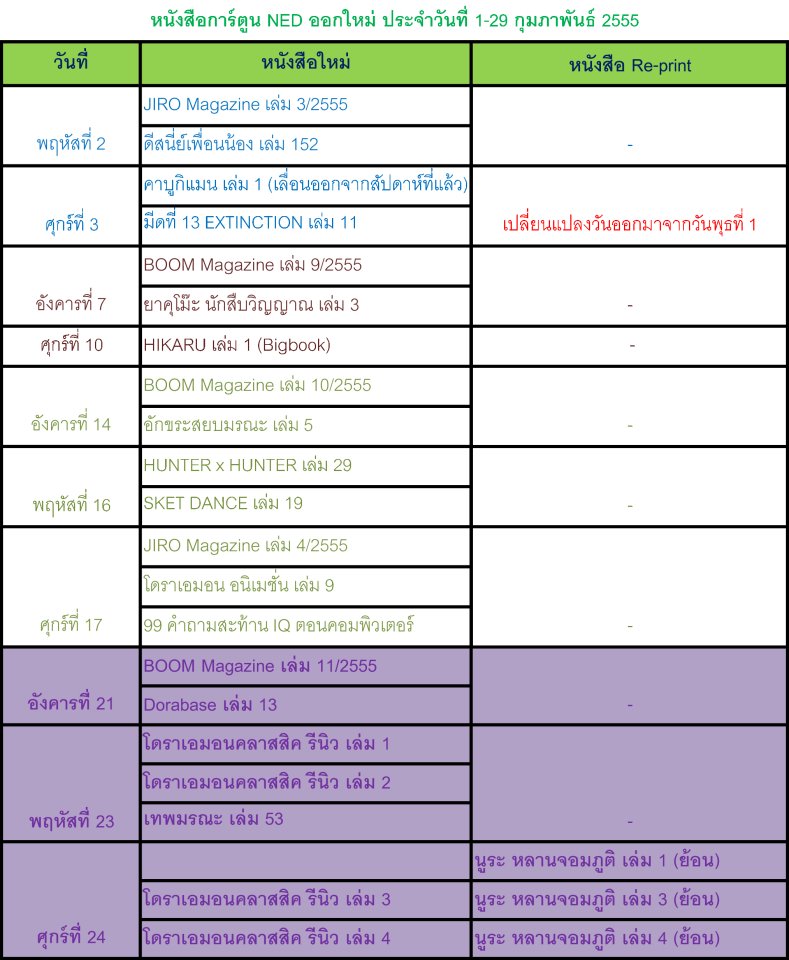 หนังสือการ์ตูน NED ออกใหม่ ประจำวันที่ 1-29 กุมภาพันธ์ 2555
วันที่ หนังสือใหม่ หนังสือ Re-print
JIRO Magazine เล่ม 3/2555
พฤหัสที่ 2 ดีสนี่ย์เพื่อนน้อง เล่ม 152 -
คาบูกิแมน เล่ม 1 (เลื่อนออกจากสัปดาห์ที่แล้ว)
ศุกร์ที่ 3 มีดที่ 13 EXTINCTION เล่ม 11 เปลี่ยนแปลงวันออกมาจากวันพุธที่ 1
BOOM Magazine เล่ม 9/2555
อังคารที่ 7 ยาคุโม๊ะ นักสืบวิญญาณ เล่ม 3 -
ศุกร์ที่ 10 HIKARU เล่ม 1 (Bigbook) -
BOOM Magazine เล่ม 10/2555
อังคารที่ 14 อักขระสยบมรณะ เล่ม 5 -
HUNTER x HUNTER เล่ม 29
พฤหัสที่ 16 SKET DANCE เล่ม 19 -
JIRO Magazine เล่ม 4/2555
โดราเอมอน อนิเมชั่น เล่ม 9
ศุกร์ที่ 17 99 คำถามสะท้าน IQ ตอนคอมพิวเตอร์ -
BOOM Magazine เล่ม 11/2555
อังคารที่ 21 Dorabase เล่ม 13 -
โดราเอมอนคลาสสิค รีนิว เล่ม 1
โดราเอมอนคลาสสิค รีนิว เล่ม 2
พฤหัสที่ 23 เทพมรณะ เล่ม 53 -
นูระ หลานจอมภูติ เล่ม 1 (ย้อน)
โดราเอมอนคลาสสิค รีนิว เล่ม 3 นูระ หลานจอมภูติ เล่ม 3 (ย้อน)
ศุกร์ที่ 24 โดราเอมอนคลาสสิค รีนิว เล่ม 4 นูระ หลานจอมภูติ เล่ม 4 (ย้อน)